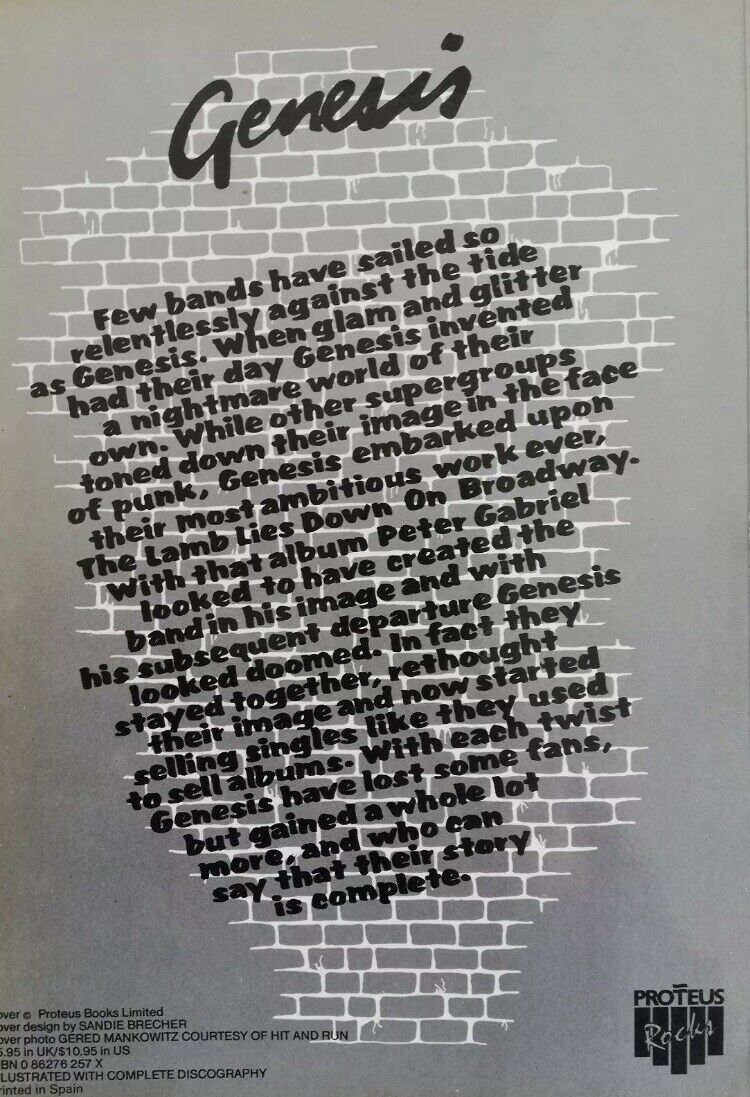 Genesis
Few bands have sailed so
relentlessly against the tide
as Genesis. When glam and glitter
had their day Genesis invented
a nightmare world of their
own. While other supergroups
toned down their image in the face
of punk, Genesis embarked upon
their most ambitious work ever,
The Lamb Lies Down On Broadway.
With that album Peter Gabriel
looked to have created the
band in his image and with
his subsequent departure Genesis
looked doomed. In fact they
stayed together, rethought
their image and now started
selling singles like they used
to sell albums. With each twist
Genesis have lost some fans,
but gained a whole lot
more, and who can
say that their story
is complete.
over © Proteus Books Limited
over design by SANDIE BRECHER
over photo GERED MANKOWITZ COURTESY OF HIT AND RUN
.95 in UK/$10.95 in US
BN 0 86276 257 X
LUSTRATED WITH COMPLETE DISCOGRAPHY
rinted in Spain
PROTEUS
Rocks